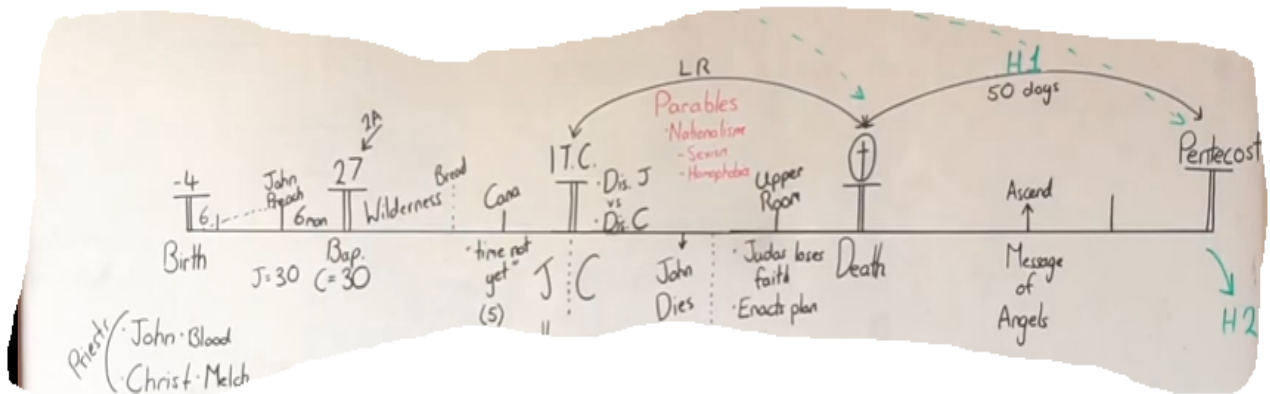 LR
H1
50 days
Parables
·Nationalism
-Sexism
-Homophobia
2A
-4
John
Preach
27
Bread
Cana
1T.C.
·Dis. J
vs
·Dis. C
Upper
Room
Ascend
Pentecost
6
6mon
Wilderness
Birth
J=30
Bap.
C=30
"time not
yet"
(5)
J
C
=
John
Dies
·Judas loses
faith
·Enacts plan
Death
Message
of
Angels
H2
Priests
·John·Blood
·Christ·Melch